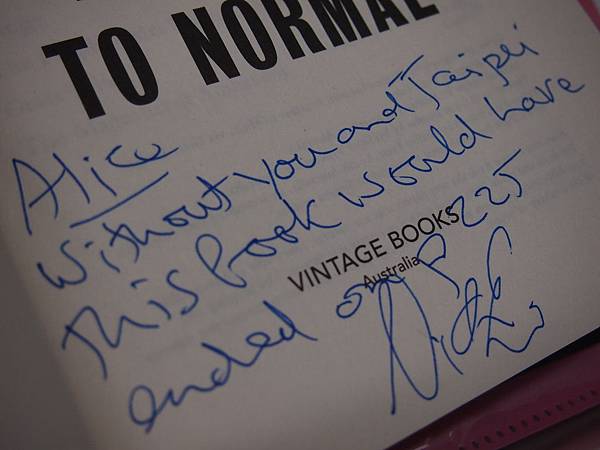 TO NORMAL
Alice
Without you and Taipei
This book would have
ended on P 225
VINTAGE BOOKS
Australia